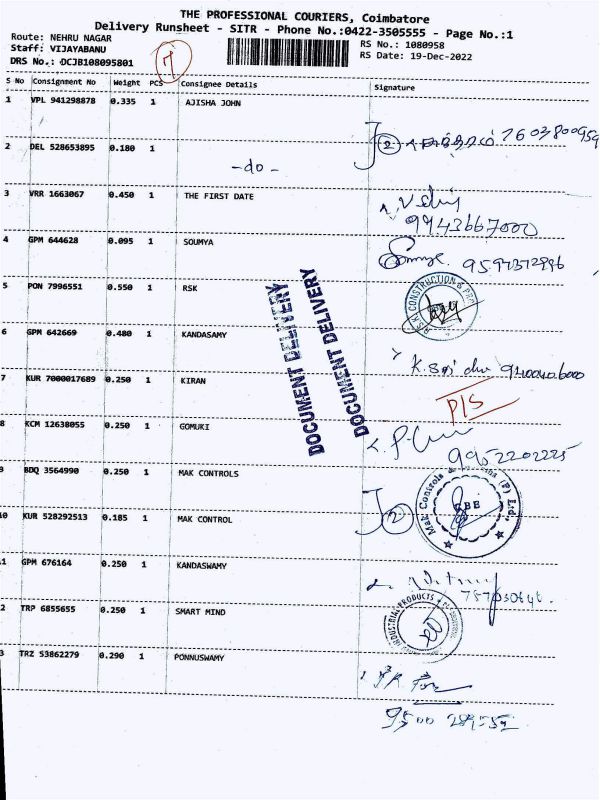 THE PROFESSIONAL COURIERS, Coimbatore
Delivery Runsheet - SITR - Phone No.:0422-3505555 - Page No.:1
Route: NEHRU NAGAR
RS No.: 1080958
Staff: VIJAYABANU
RS Date: 19-Dec-2022
DRS No.: DCJB108095801
S No Consignment No Weight PCS Consignee Details Signature
1 VPL 941298878 0.335 1 AJISHA JOHN
2 7603800959
2 DEL 528653895 0.180 1 -do-
3 VRR 1663067 0.450 1 THE FIRST DATE
9943667000
4 GPM 644628 0.095 1 SOUMYA
5 PON 7996551 0.550 1 RSK
CONSTRUCTION &
DOCUMENT DELIVERY
DOCUMENT DELIVERY
6 GPM 642669 0.480 1 KANDASAMY
7 KUR 7000017689 0.250 1 KIRAN
P/S
8 KCM 12638055 0.250 1 GOMUKI
9952202225
9 BDQ 3564990 0.250 1 MAK CONTROLS
Mak Controls (P) Ltd.,
CBE
10 KUR 528292513 0.185 1 MAK CONTROL
2
11 GPM 676164 0.250 1 KANDASWAMY
12 TRP 6855655 0.250 1 SMART MIND
INDUSTRIAL PRODUCTS
13 TRZ 53862279 0.290 1 PONNUSWAMY